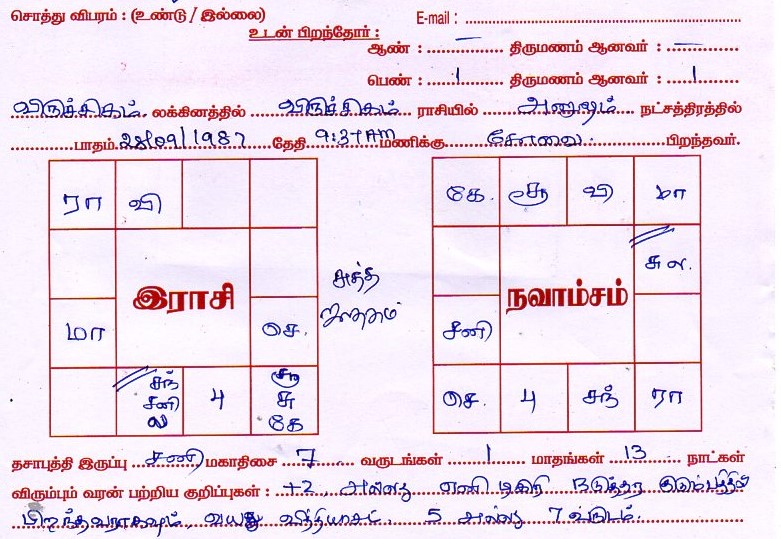 சொத்து விபரம் : (உண்டு / இல்லை) E-mail :
உடன் பிறந்தோர் :
ஆண் : – திருமணம் ஆனவர் : –
பெண் : 1 திருமணம் ஆனவர் : 1
விருச்சிகம் லக்கினத்தில் விருச்சிகம் ராசியில் அனுஷம் நட்சத்திரத்தில்
பாதம் 28/09/1987 தேதி 9:37 AM மணிக்கு கோவை பிறந்தவர்.
ரா வி
கே. சூ வி மா
சு ல
இராசி
சுத்த
ஜாதகம்
நவாம்சம்
மா செ.
சனி
சந்
சனி
ல
பு
சூ
சு
கே
செ. பு சந் ரா
தசாபுத்தி இருப்பு சனி மகாதிசை 7 வருடங்கள் 1 மாதங்கள் 13 நாட்கள்
விரும்பும் வரன் பற்றிய குறிப்புகள் : +2, அல்லது எனி டிகிரி நடுத்தர குடும்பத்தில்
பிறந்தவராகவும், வயது வித்தியாசம் 5 அல்லது 7 வருடம்.